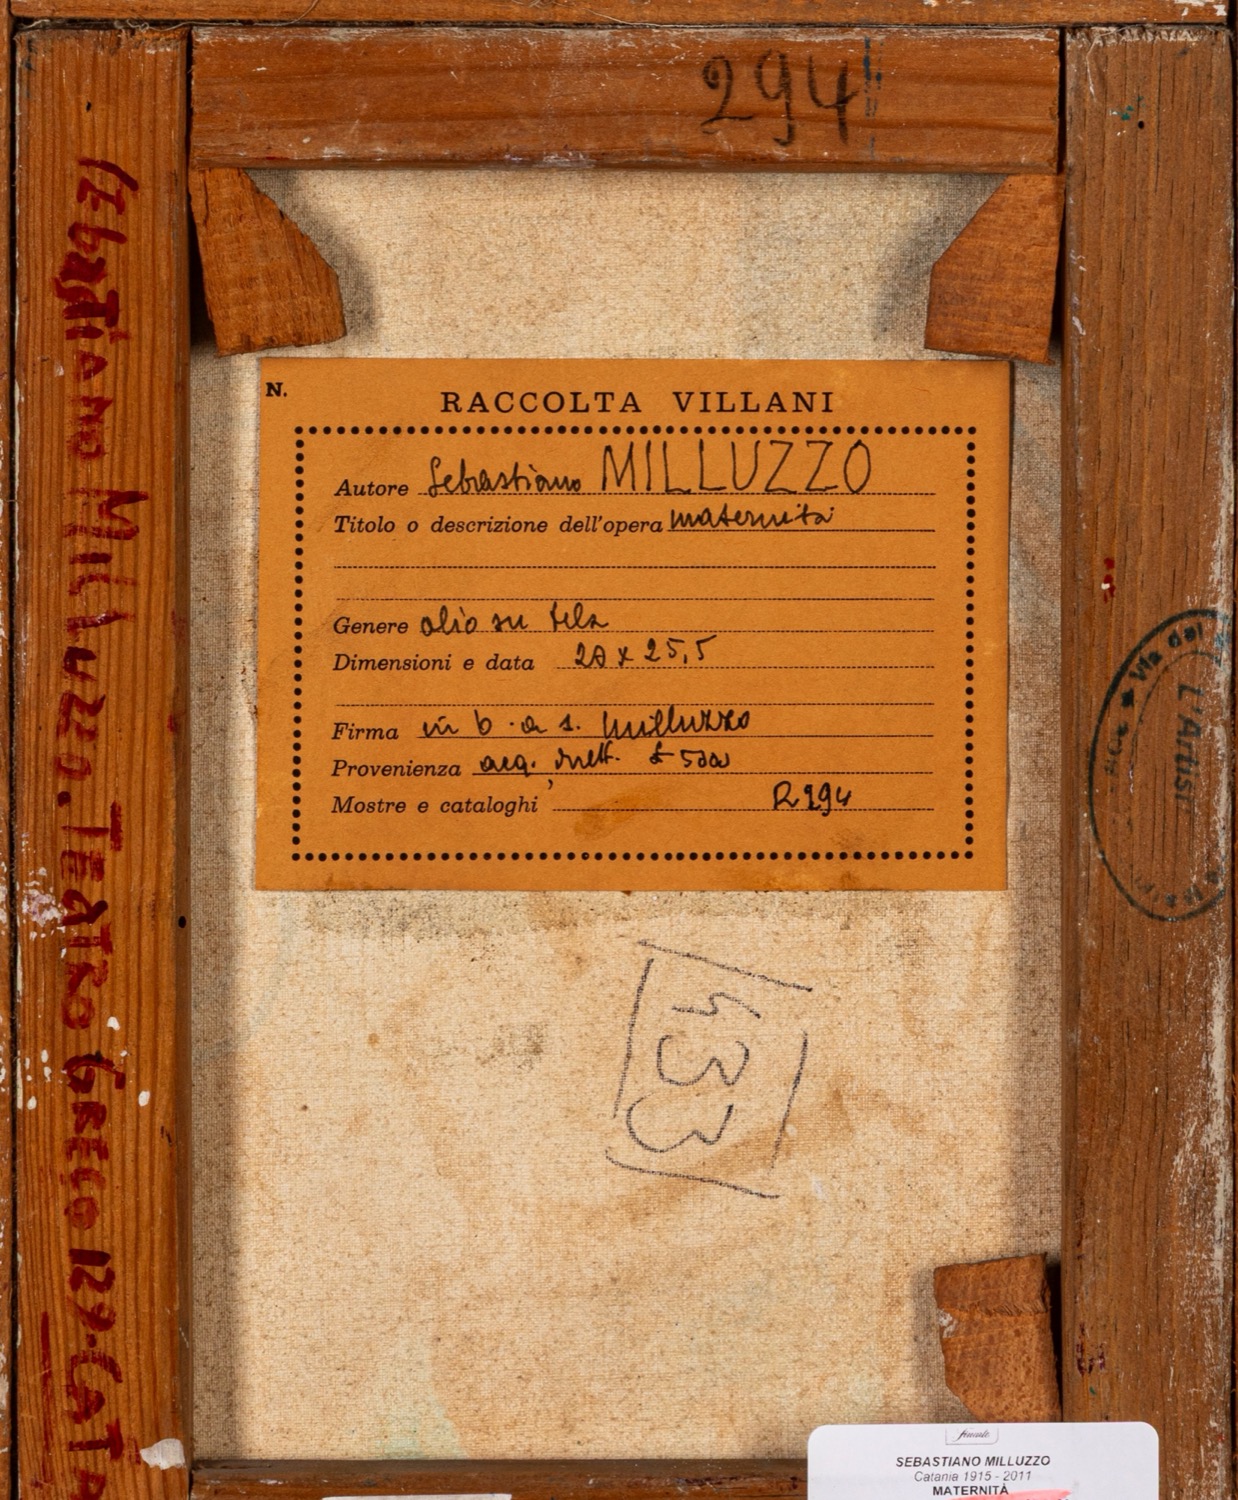 294
Sebastiano Milluzzo. Teatro Greco 129-Cat
N.
RACCOLTA VILLANI
Autore Sebastiano MILLUZZO
Titolo o descrizione dell'opera maternità
Genere olio su tela
Dimensioni e data 20 x 25,5
Firma in b. a s. Milluzzo
Provenienza acq.
Mostre e cataloghi R 294
Via del
L'Artist
433
finarte
SEBASTIANO MILLUZZO
Catania 1915 - 2011
MATERNITÀ